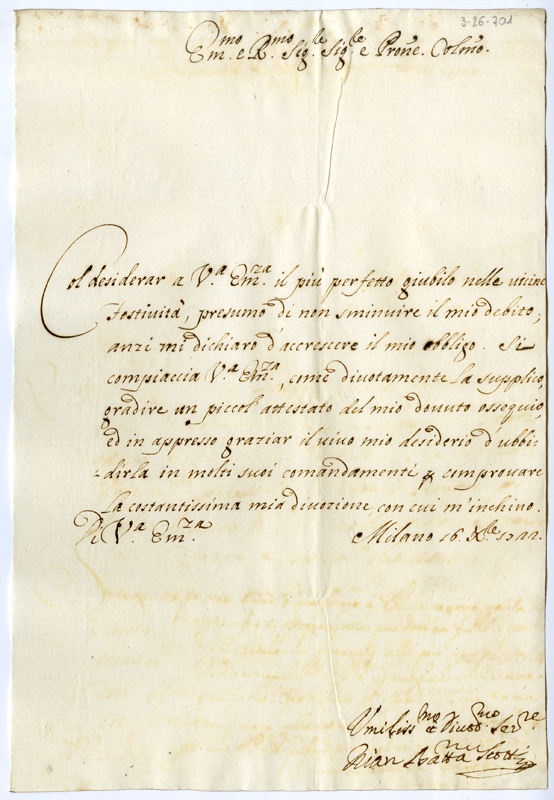 3-26-701
Em.mo e R.mo Sig.le Sig.le e Prone. Colmo.
Col desiderar a V.a Em.za il più perfetto giubilo nelle vicine
Festività, presumo di non sminuire il mio debito;
anzi mi dichiaro d'accrescere il mio obbligo. Si
compiaccia V.a Em.za, come divotamente la supplico,
gradire un piccol' attestato del mio dovuto ossequio,
ed in appresso graziar il vivo mio desiderio d'ubbi-
-dirla in molti suoi comandamenti p comprovare
la costantissima mia divozione, con cui m'inchino.
Di V.a Em.za Milano 16. Xbre. 1722.
Umiliss.mo Divot.mo Ser.re
Gian Batta Scotti